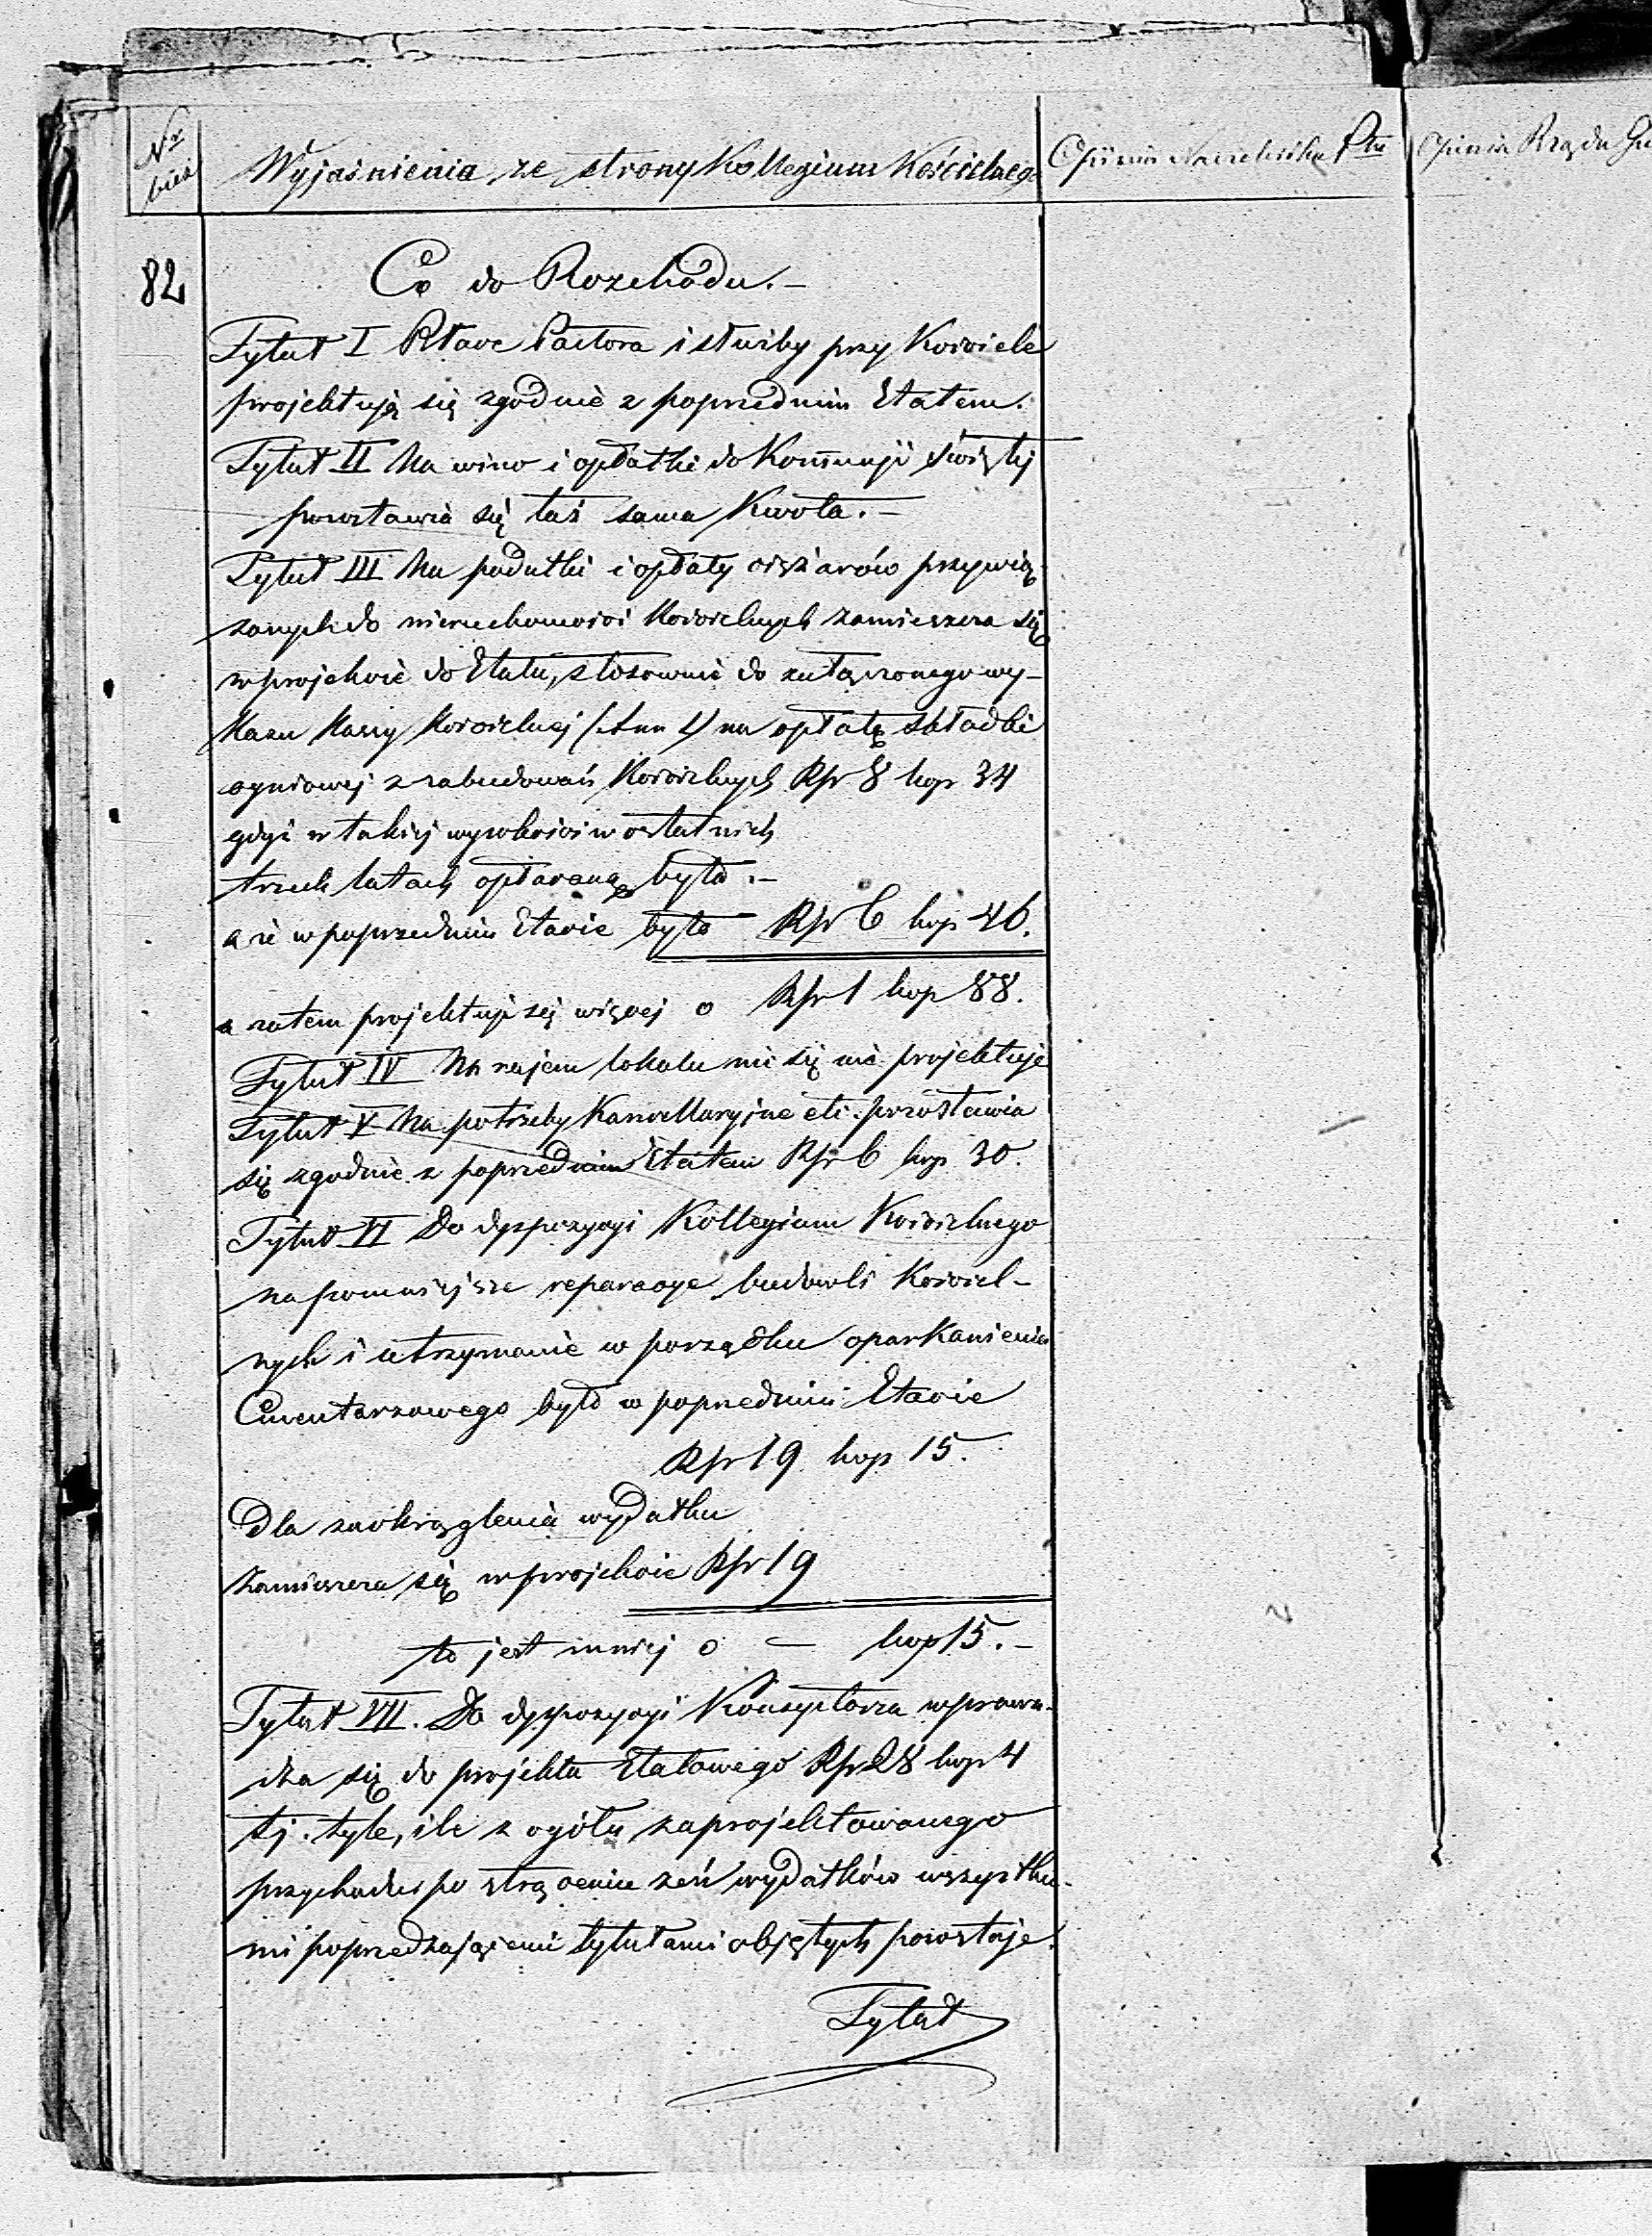 Nr bież
Wyjaśnienia ze strony Kollegium Kościelnego
Opinia Naczelnika Ptu
Opinia Rządu Gu
82
Co do Rozchodu.–
Tytuł I Płace Pastora i służby przy Kościele
projektują się zgodnie z poprzednim Etatem.
Tytuł II Na wino i opłatki do Kommunji Świętej
pozostawia się taż sama Kwota.–
Tytuł III Na podatki i opłaty ciężarów przywią-
zanych do nieruchomości Kościelnych zamieszcza się
w projekcie do Etatu, stosownie do załączonego wy-
kazu Kassy Kościelnej (Ann 4) na opłatę składki
ogniowej z zabudowań Kościelnych Rsr 8 kop 34
gdyż w takiej wysokości w ostatnich
trzech latach opłacaną była.–
a że w poprzednim Etacie było Rsr 6 kop 46.
a zatem projektuje się więcej o Rsr 1 kop 88.
Tytuł IV Na najem lokalu nic się nie projektuje
Tytuł V Na potrzeby Kancellaryjne etc. pozostawia
się zgodnie z poprzednim Etatem Rsr 6 kop 30.
Tytuł VI Do dyspozycyi Kollegium Kościelnego
na pomniejsze reparacye budowli Kościel-
nych i utrzymanie w porządku oparkanienia
Cmentarzowego było w poprzednim Etacie
Rsr 19 kop 15.
Dla zaokrąglenia wydatku
Zamieszcza się w projekcie Rsr 19
to jest mniej o – kop 15.–
Tytuł VII. Do dyspozycyi Konsystorza wprowa-
dza się do projektu Etatowego Rsr 28 kop 4
tj. tyle, ile z ogółu zaprojektowanego
przychodu po strąceniu zeń wydatków wszystkie-
mi poprzedzającemi tytułami objętych pozostaje.
Tytuł